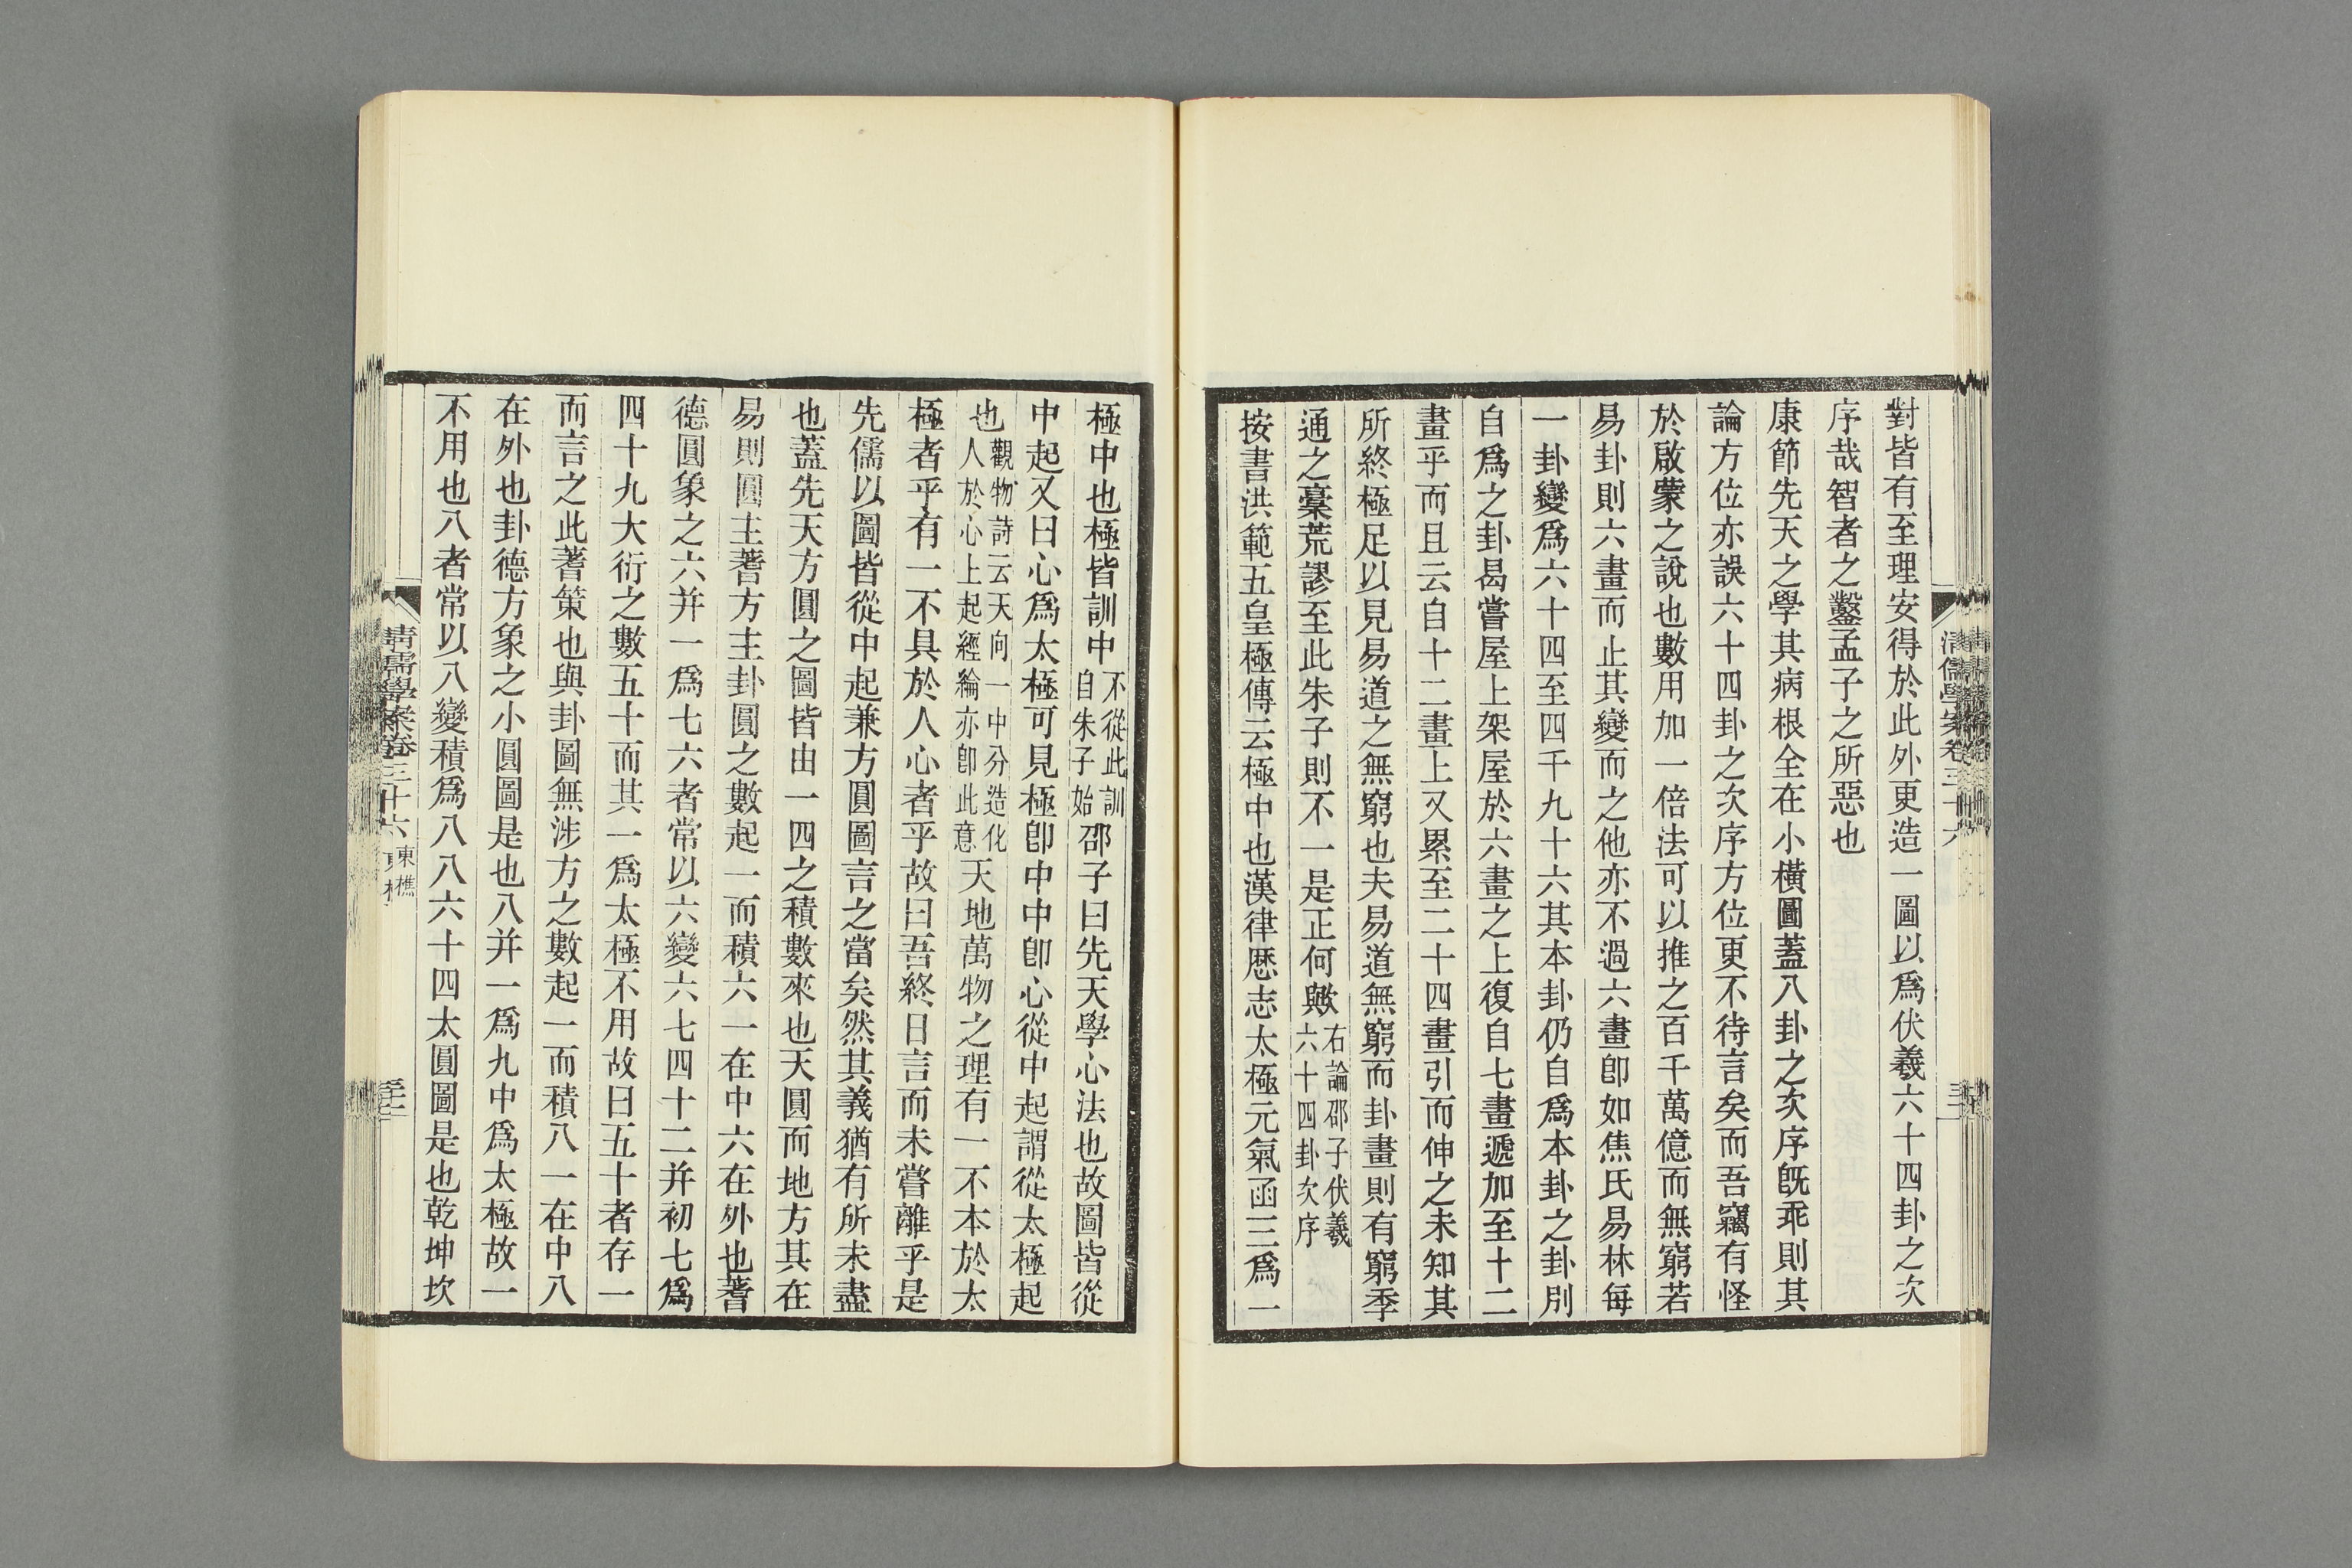 對皆有至理安得於此外更造一圖以爲伏羲六十四卦之次
序哉智者之鑿孟子之所惡也
康節先天之學其病根全在小橫圖蓋八卦之次序旣乖則其
論方位亦誤六十四卦之次序方位更不待言矣而吾竊有怪
於啟蒙之說也數用加一倍法可以推之百千萬億而無窮若
易卦則六畫而止其變而之他亦不過六畫卽如焦氏易林每
一卦變爲六十四至四千九十六其本卦仍自爲本卦之卦別
自爲之卦曷嘗屋上架屋於六畫之上復自七畫遞加至十二
畫乎而且云自十二畫上又累至二十四畫引而伸之未知其
所終極足以見易道之無窮也夫易道無窮而卦畫則有窮季
通之藁荒謬至此朱子則不一是正何歟右論邵子伏羲
六十四卦次序
按書洪範五皇極傳云極中也漢律厯志太極元氣函三爲一
極中也極皆訓中不從此訓
自朱子始邵子曰先天學心法也故圖皆從
中起又曰心爲太極可見極卽中中卽心從中起謂從太極起
也觀物詩云天向一中分造化
人於心上起經綸亦卽此意天地萬物之理有一不本於太
極者乎有一不具於人心者乎故曰吾終日言而未嘗離乎是
先儒以圖皆從中起兼方圓圖言之當矣然其義猶有所未盡
也蓋先天方圓之圖皆由一四之積數來也天圓而地方其在
易則圓主蓍方主卦圓之數起一而積六一在中六在外也蓍
德圓象之六并一爲七六者常以六變六七四十二并初七爲
四十九大衍之數五十而其一爲太極不用故曰五十者存一
而言之此蓍策也與卦圖無涉方之數起一而積八一在中八
在外也卦德方象之小圓圖是也八并一爲九中爲太極故一
不用也八者常以八變積爲八八六十四太圓圖是也乾坤坎
清儒學案卷三十六 東樵